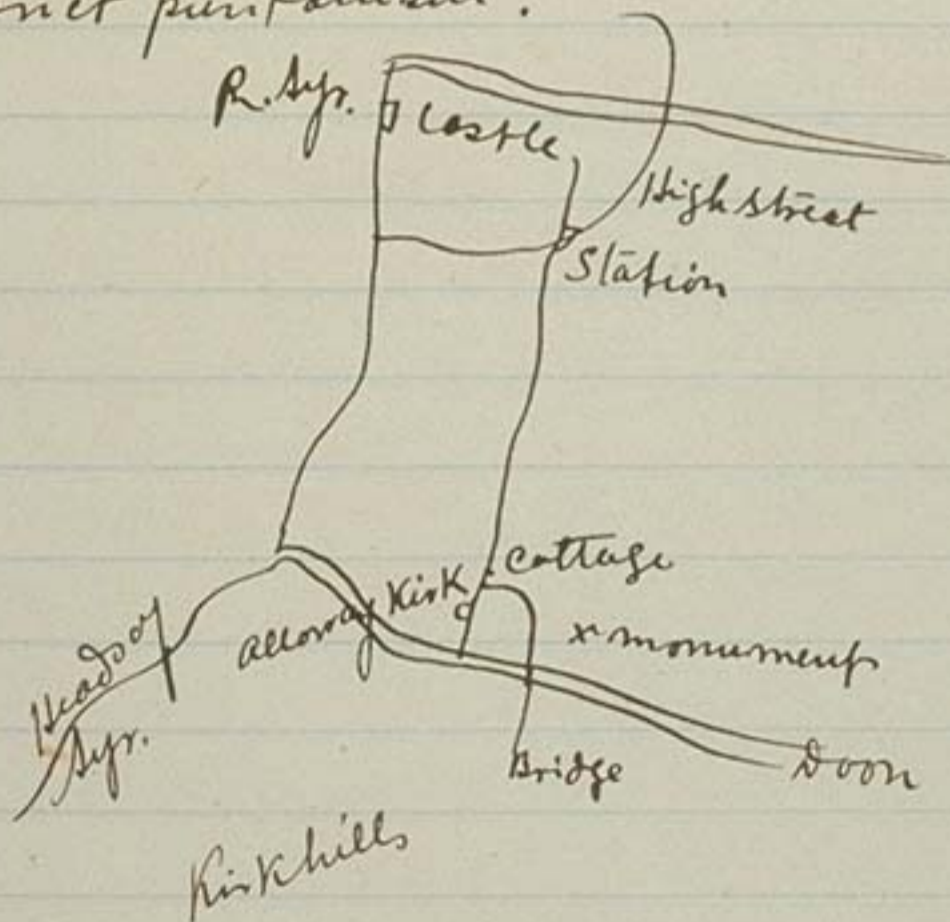 R. Ayr.
Castle
High Street
Station
Cottage
Alloway Kirk
x monument
Heads of
Ayr.
Bridge
Doon
Kirkhills